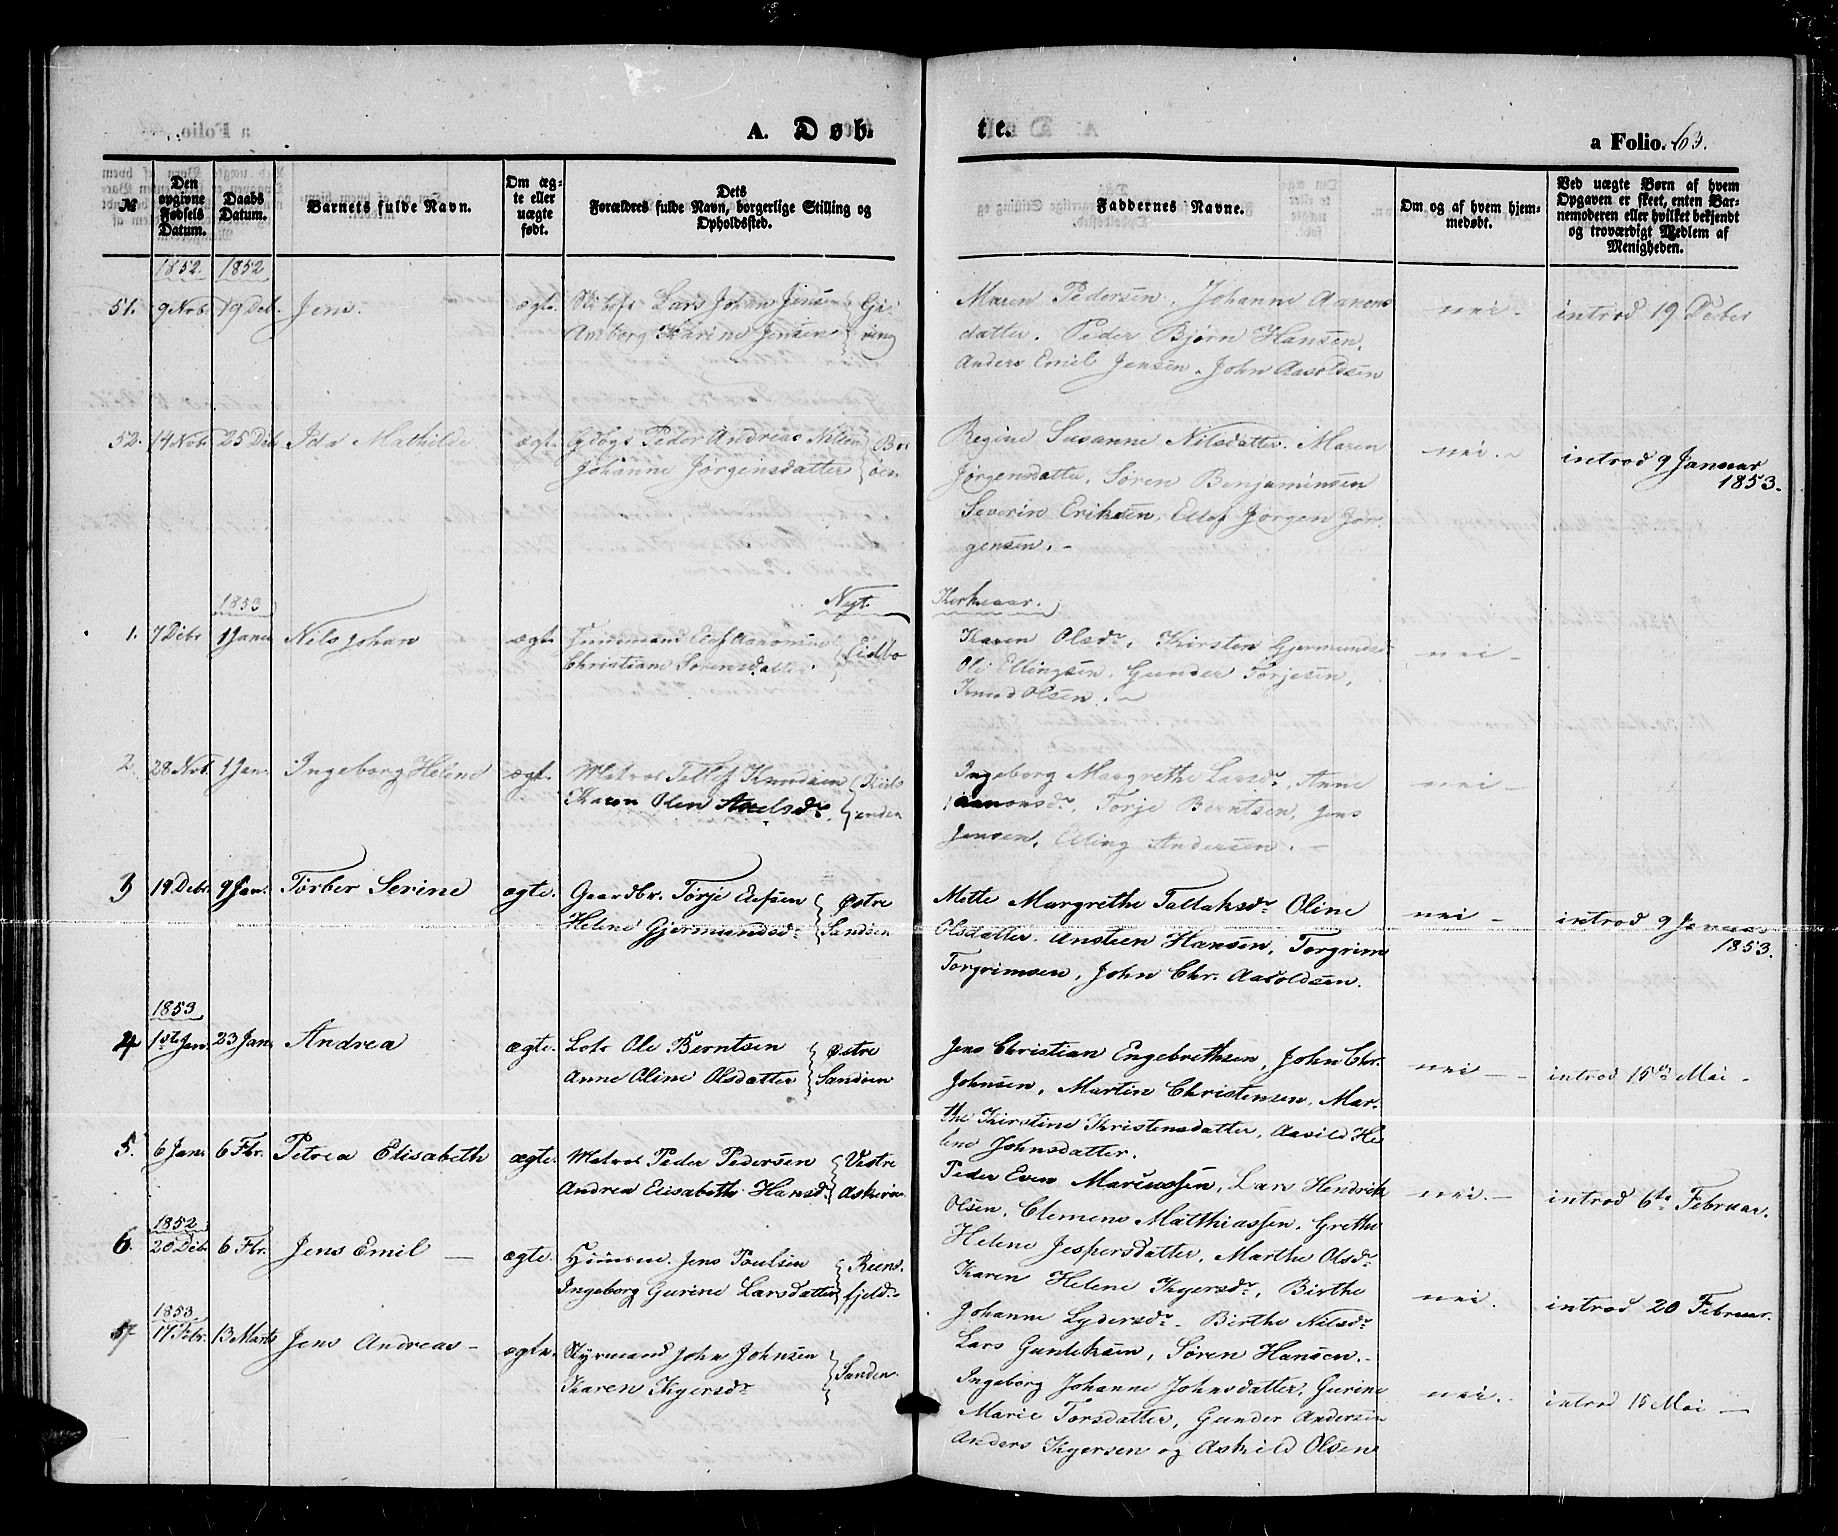 A. Døb-
te.
a Folio. 63.
№
Den opgivne Fødsels Datum.
Daabs Datum.
Barnets fulde Navn.
Om ægte eller uægte født.
Dets Forældres fulde Navn, borgerlige Stilling og Opholdssted.
Faddernes Navne.
Om og af hvem hjemmedøbt.
Ved uægte Børn af hvem Opgaven er skeet, enten Barnemoderen eller hvilket bekjendt og troværdigt Medlem af Menigheden.
1852. 1852
51. 9 Nob. 19 Deb. Jens. ægte Lars Johan Jensen
Karine Jensen
Maren Pedersen, Johanne Aanons
datter. Peder Bjørn Hansen,
Anders Emil Jensen, John Aasoldsen
nei - introd 19 Decber
52. 14 Nob. 25 Deb Ida Mathilde ægte Peder Andreas Nilsen { Bor
Johanne Jørgensdatter { øen
Regine Susanne Nilsdatter. Maren
Jørgensdatter, Søren Benjaminsen
Severin Eriksen, Ellef Jørgen Jør
gensen. -
nei. - introd 9 Januar
1853.
Nyt. Kirkeaar.
1853
1. 7 Debr 1 Janu Nils Johan ægte Aanonsen
Christiane Sørensdatter. { Eidbo
Karen Olsdr, Kirsten Gjermundsd
Ole Ellingsen, Gunder Torjesen,
Knud Olsen. -
nei -
2. 28 Nob. 1 Jan. Ingeborg Helene ægte. Matros Tallef Knudsen
Karen Olen Axelsdr.
Ingeborg Margrethe Larsdr, Anne
Aanonsdr, Torje Berntsen, Jens
Jensen, Elling Andersen. -
nei -
3 19 Deb. 9 Jan. Torber Serine ægte. Gaardbr. Torje Elefsen { Østre
Helene Gjermundsdr { Sandøen
Mette Margrethe Tallaksdr Oline
Olsdatter. Ansteen Hansen, Torgrim
Torgrimsen, John Chr. Aasoldsen.
nei - introd 9 Januar
1853.
1853
4 1ste Jan. 23 Jan. Andrea ægte. Lods Ole Berntsen { Østre
Anne Oline Olsdatter { Sandøen
Jens Christian Engebrethsen, John Chr.
Johnsen, Martin Christensen, Mar-
the Kirstine Kristensdatter, Aasild He
lene Johnsdatter.
nei - introd 15de Mai -
5. 6 Jan. 6 Fbr. Petrea Elisabeth ægte. Matros Peder Pedersen { Vestre
Andrea Elisabeth Hansd. { Askerøe
Peder Even Mareussen, Lars Hendrik
Olsen, Clemens Matthiassen, Grethe
Helene Jespersdatter, Marthe Olsdr
nei. - introd 6te Februar.
1852
6. 20 Deb. 6 Fbr. Jens Emil - ægte. Jens Poulsen { Reens
Ingeborg Gurine Larsdatter { fjeld.
Karen Helene Kgersdr, Birthe
Johanne Lydersdr. Birthe Nilsdr
Lars Guntelsen, Søren Hansen. -
nei. introd 20 Februar.
1853
7 17 Febr. 13 Marts Jens Andreas - ægte. Styrmand John Johnsen
Karen Kgersdr { Sanden.
Ingeborg Johanne Johnsdatter, Gurine
Marie Torsdatter, Gunder Andersen
Anders Kgersen og Askild Olsen
nei. - introd 15 Mai -